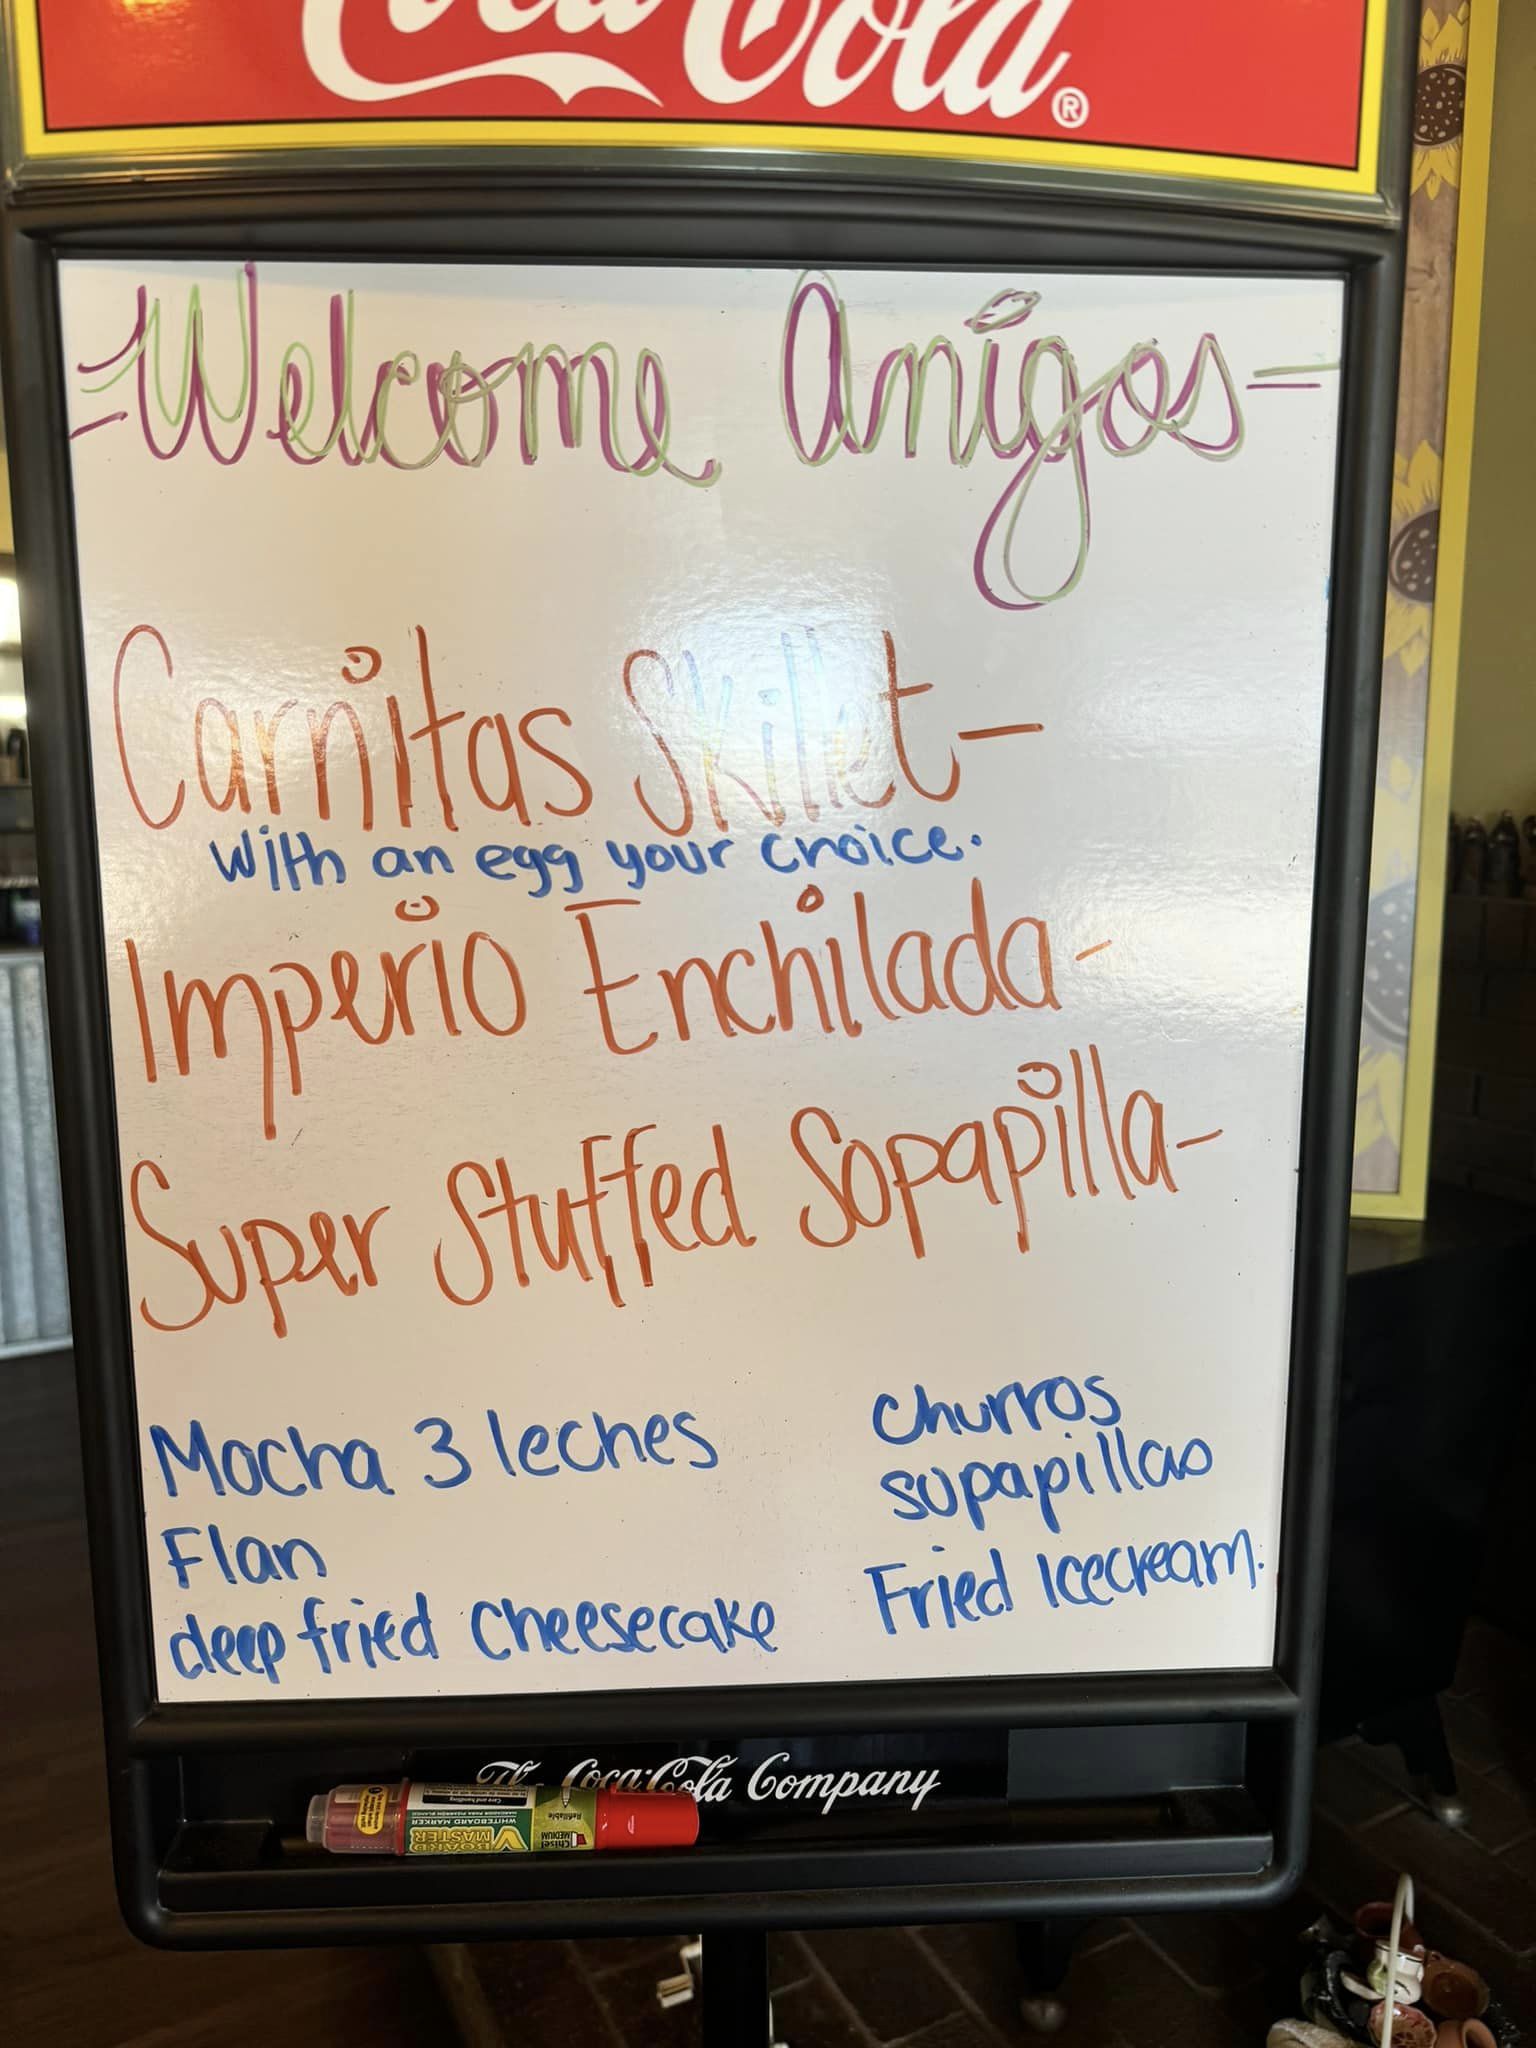 Coca-Cola®
Welcome Amigos
Carnitas Skillet-
with an egg your choice.
Imperio Enchilada-
Super Stuffed Sopapilla-
Mocha 3 leches
Flan
deep fried cheesecake
Churros
sopapillas
Fried Icecream.
The Coca-Cola Company
Care and handling
V BOARD MASTER
WHITEBOARD MARKER
Chisel
MEDIUM
Refillable